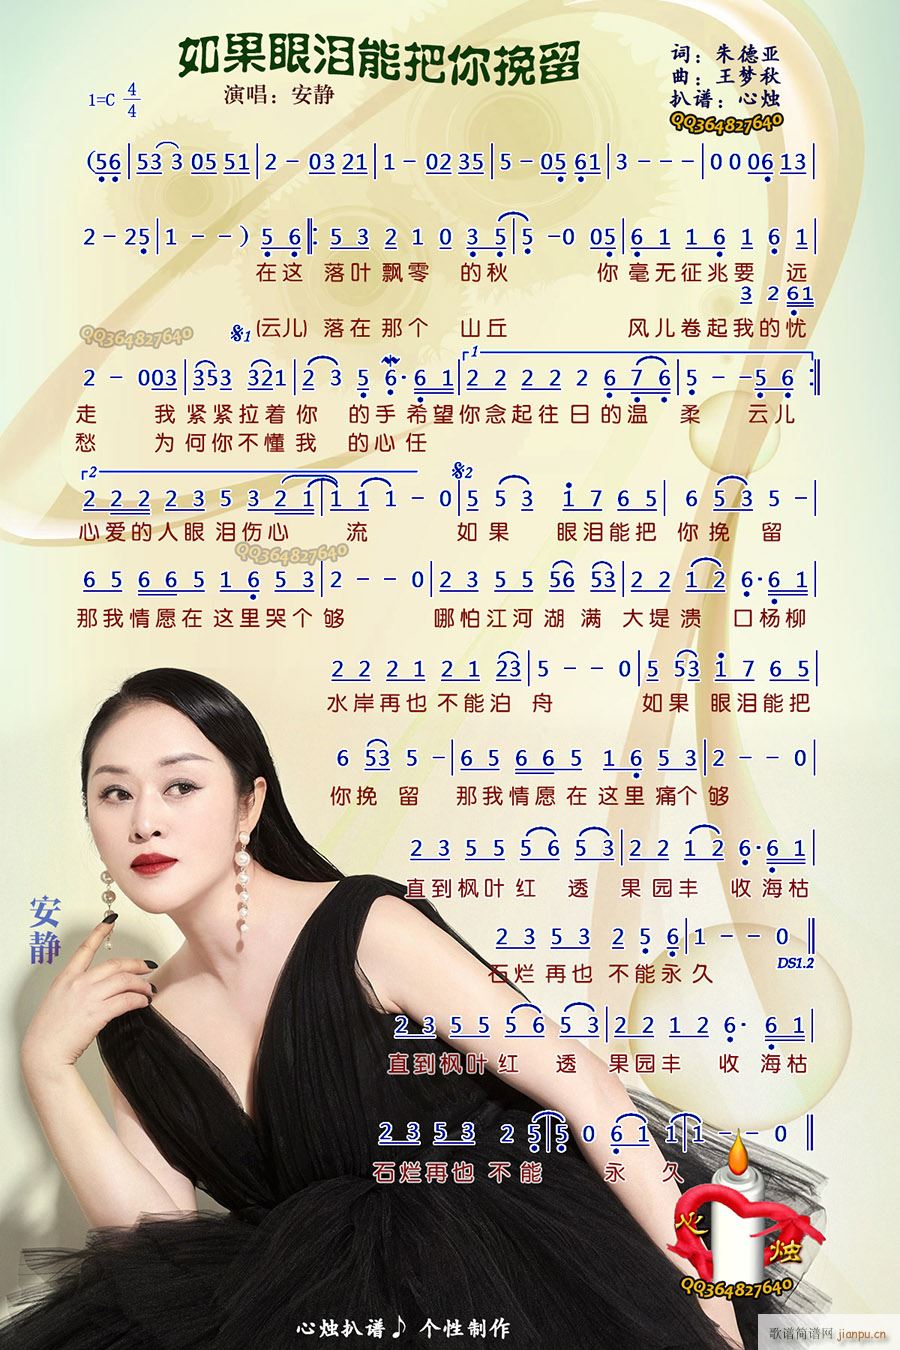 如果眼泪能把你挽留
演唱：安静
词：朱德亚
曲：王梦秋
扒谱：心烛
QQ364827640
1=C 4/4
(56|53 3 05 51|2 - 03 21|1 - 02 35|5 - 05 61|3 - - -|0 0 06 13|
2 - 25|1 - - ) 5 6‖: 5 3 2 1 0 3 5|5 - 0 05|6 1 1 6 1 6 1|
在这 落叶飘零 的秋 你毫无征兆要 远
3 2 61
QQ364827640
𝄋1 (云儿) 落在那个 山丘 风儿卷起我的忧
2 - 003|353 321|2 3 5 6· 6 1|1 2 2 2 2 2 6 7 6|5 - - 5 6 :‖
走 我紧紧拉着你 的手希望你念起往日的温 柔 云儿
愁 为何你不懂我 的心任
2
𝄋2
2 2 2 2 3 5 3 2 1|1 1 1 - 0|5 5 3 1 7 6 5|6 5 3 5 -|
心爱的人眼泪伤心 流 如果 眼泪能把 你挽 留
QQ364827640
6 5 6 6 5 1 6 5 3|2 - - 0|2 3 5 5 56 53|2 2 1 2 6· 6 1|
那我情愿在这里哭个够 哪怕江河湖 满 大堤溃 口杨柳
2 2 2 1 2 1 23|5 - - 0|5 53 1 7 6 5|
水岸再也不能泊 舟 如果 眼泪能把
6 53 5 -|6 5 6 6 5 1 6 5 3|2 - - 0|
你挽 留 那我情愿在这里痛个够
2 3 5 5 5 6 5 3|2 2 1 2 6· 6 1|
直到枫叶红 透 果园丰 收海枯
安静
2 3 5 3 2 5 6|1 - - 0‖
DS1.2
石烂再也 不能永久
2 3 5 5 5 6 5 3|2 2 1 2 6· 6 1|
直到枫叶红 透 果园丰 收 海枯
2 3 5 3 2 5|5 0 6 1 1|1 - - 0‖
石烂再也 不 能 永 久
心烛
QQ364827640
心烛扒谱♪ 个性制作
歌谱简谱网 jianpu.cn